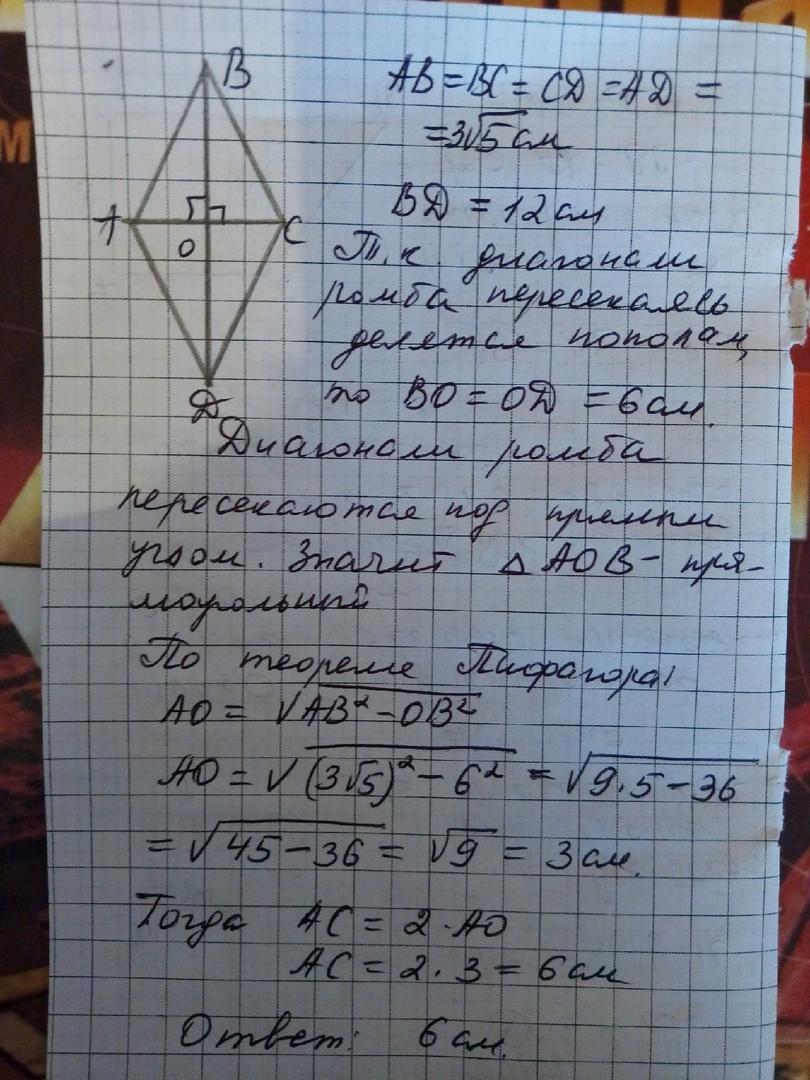 B
AB = BC = CD = AD =
= 3√5 см
BD = 12 см
A
O
C
Т.к. диагонали
ромба пересекаясь
делятся пополам,
D
то BO = OD = 6 см.
Диагонали ромба
пересекаются под прямым
углом. Значит △ AOB – пря-
моугольный
По теореме Пифагора:
AO = √AB² – OB²
AO = √(3√5)² – 6² = √9·5 – 36
= √45 – 36 = √9 = 3 см.
Тогда AC = 2·AO
AC = 2·3 = 6 см
Ответ: 6 см.